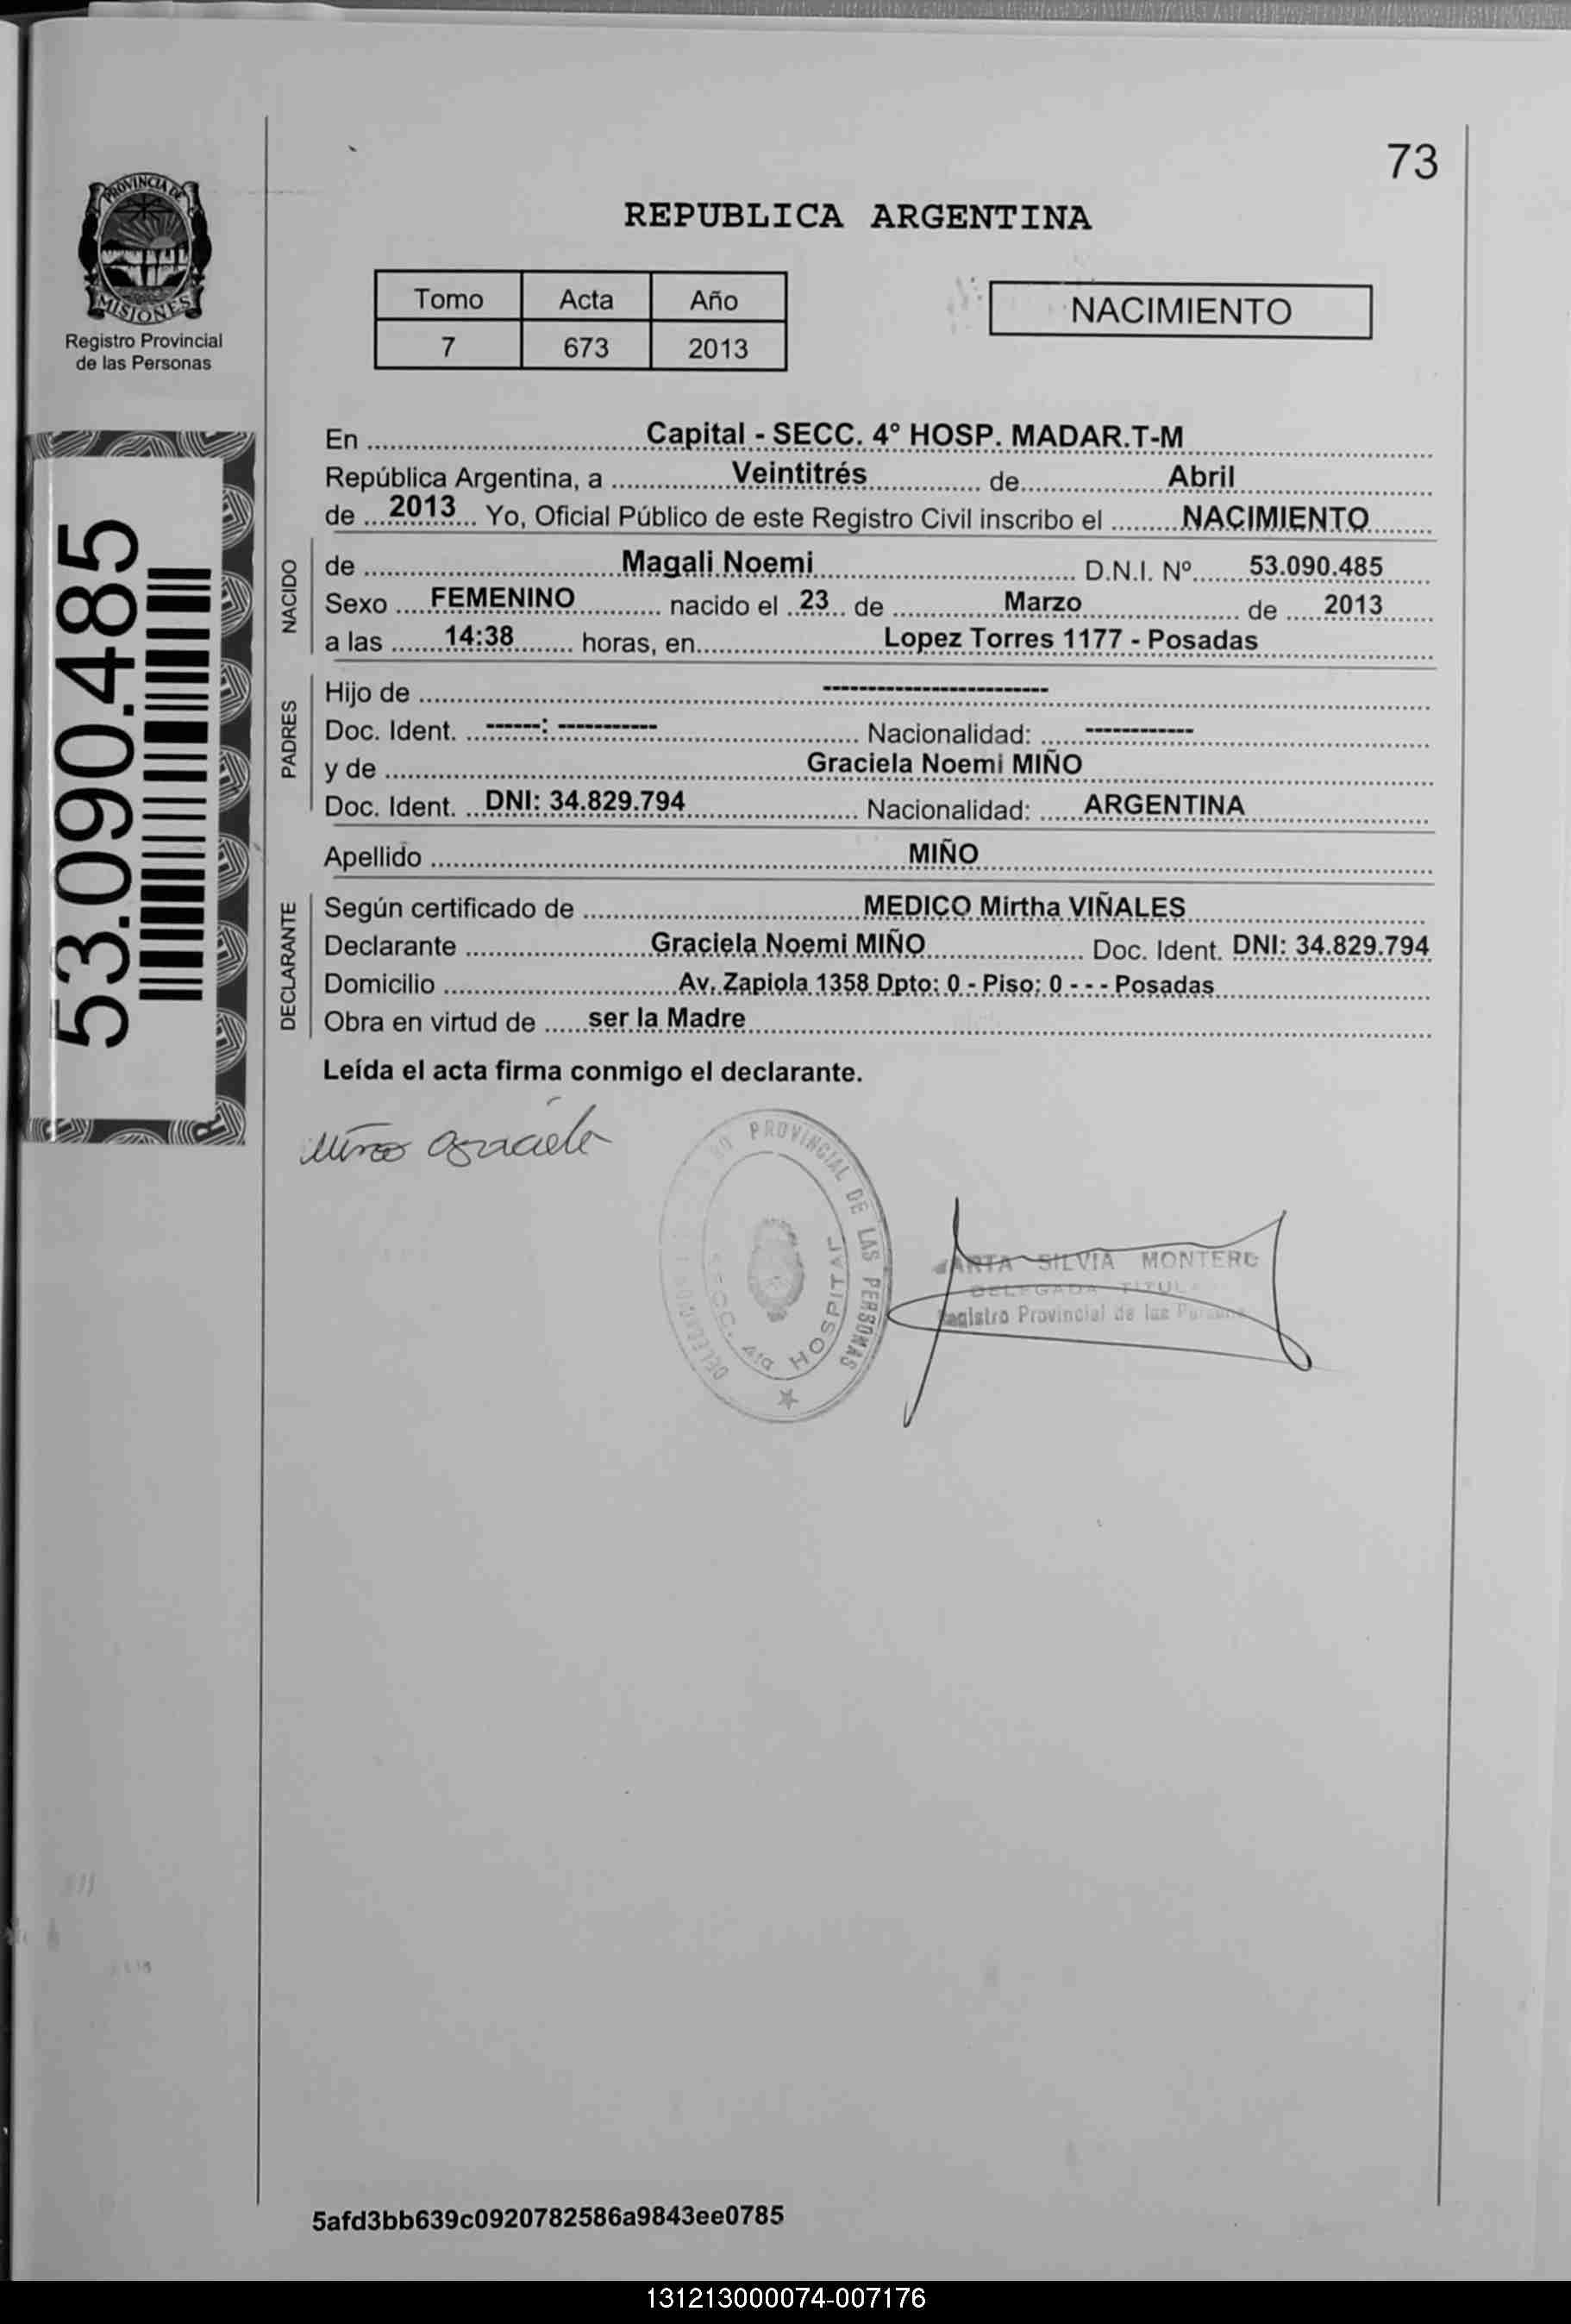 73
PROVINCIA DE
MISIONES
Registro Provincial
de las Personas
REPUBLICA ARGENTINA
Tomo Acta Año
7 673 2013
NACIMIENTO
53.090.485
En Capital - SECC. 4° HOSP. MADAR.T-M
República Argentina, a Veintitrés de Abril
de 2013 Yo, Oficial Público de este Registro Civil inscribo el NACIMIENTO
NACIDO
de Magali Noemi D.N.I. Nº 53.090.485
Sexo FEMENINO nacido el 23 de Marzo de 2013
a las 14:38 horas, en Lopez Torres 1177 - Posadas
PADRES
Hijo de -------------------------
Doc. Ident. ------: ----------- Nacionalidad: ------------
y de Graciela Noemi MIÑO
Doc. Ident. DNI: 34.829.794 Nacionalidad: ARGENTINA
Apellido MIÑO
DECLARANTE
Según certificado de MEDICO Mirtha VIÑALES
Declarante Graciela Noemi MIÑO Doc. Ident. DNI: 34.829.794
Domicilio Av. Zapiola 1358 Dpto: 0 - Piso: 0 - - - Posadas
Obra en virtud de ser la Madre
Leída el acta firma conmigo el declarante.
Miño Graciela
PROVINCIAL DE LAS PERSONAS
SECC. 4ta HOSPITAL
SILVIA MONTERO
DELEGADA
Registro Provincial de las
5afd3bb639c0920782586a9843ee0785
131213000074-007176